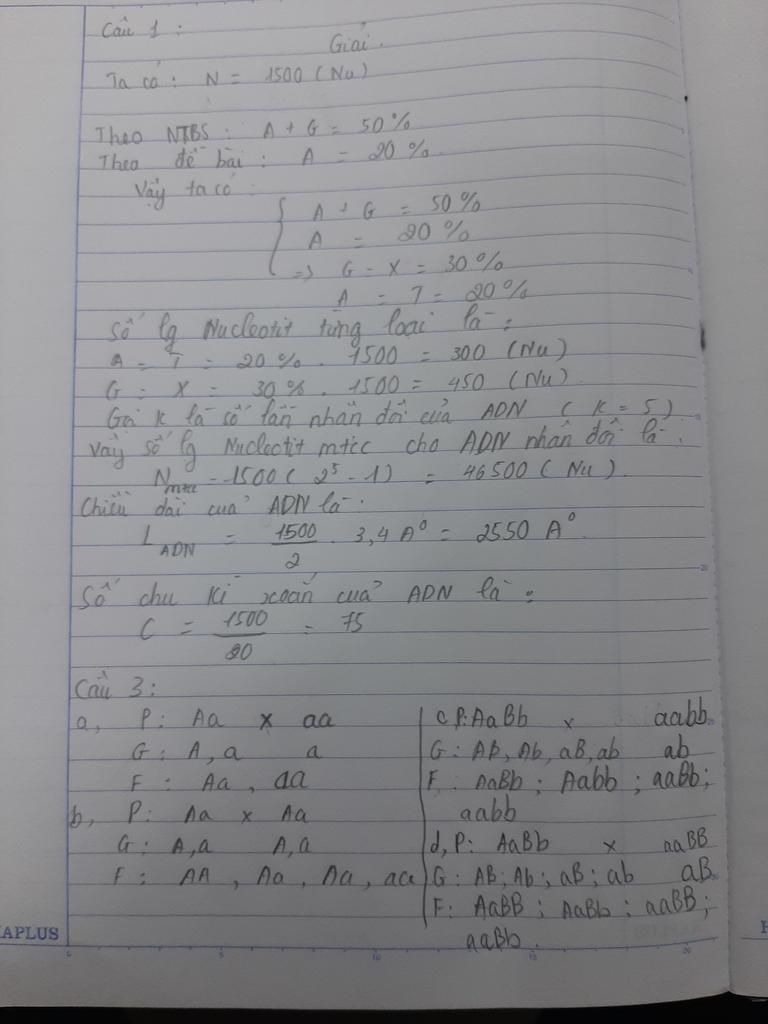 Câu 1 :
Giải.
Ta có : N = 1500 (Nu)
Theo NTBS : A + G = 50%
Theo đề bài : A = 20%.
Vậy ta có :
A + G = 50%
A = 20%
=> G = X = 30%
A = T = 20%
Số lg Nucleotit từng loại là :
A = T = 20% . 1500 = 300 (Nu)
G = X = 30% . 1500 = 450 (Nu)
Gọi K là số lần nhân đôi của ADN ( K = 5 )
Vậy số lg Nucleotit mtcc cho ADN nhân đôi là :
Nmtcc = 1500 ( 2^5 - 1 ) = 46500 ( Nu ).
Chiều dài của ADN là :
L ADN = 1500/2 . 3,4 A° = 2550 A°.
Số chu kì xoắn của ADN là :
C = 1500/20 = 75
Câu 3 :
a, P : Aa x aa
G : A, a a
F : Aa , aa
b, P : Aa x Aa
G : A,a A,a
F : AA , Aa , Aa , aa
c P: AaBb x aabb
G : AB, Ab, aB, ab ab
F : AaBb ; Aabb ; aaBb ;
aabb
d, P : AaBb x aaBB
G : AB; Ab ; aB ; ab aB
F : AaBB ; AaBb ; aaBB ;
aaBb .
APLUS
0 5 10 15 20
H